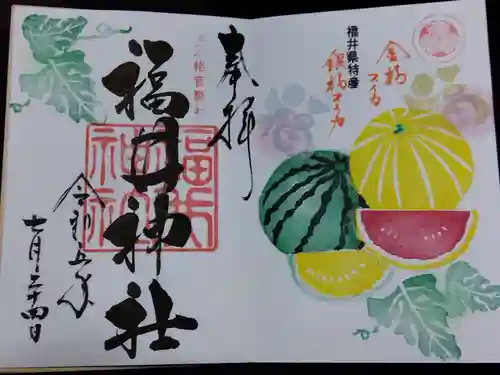 奉拝
福井神社
令和五年
七月二十四日
福井県特産
金福スイカ
銀福スイカ